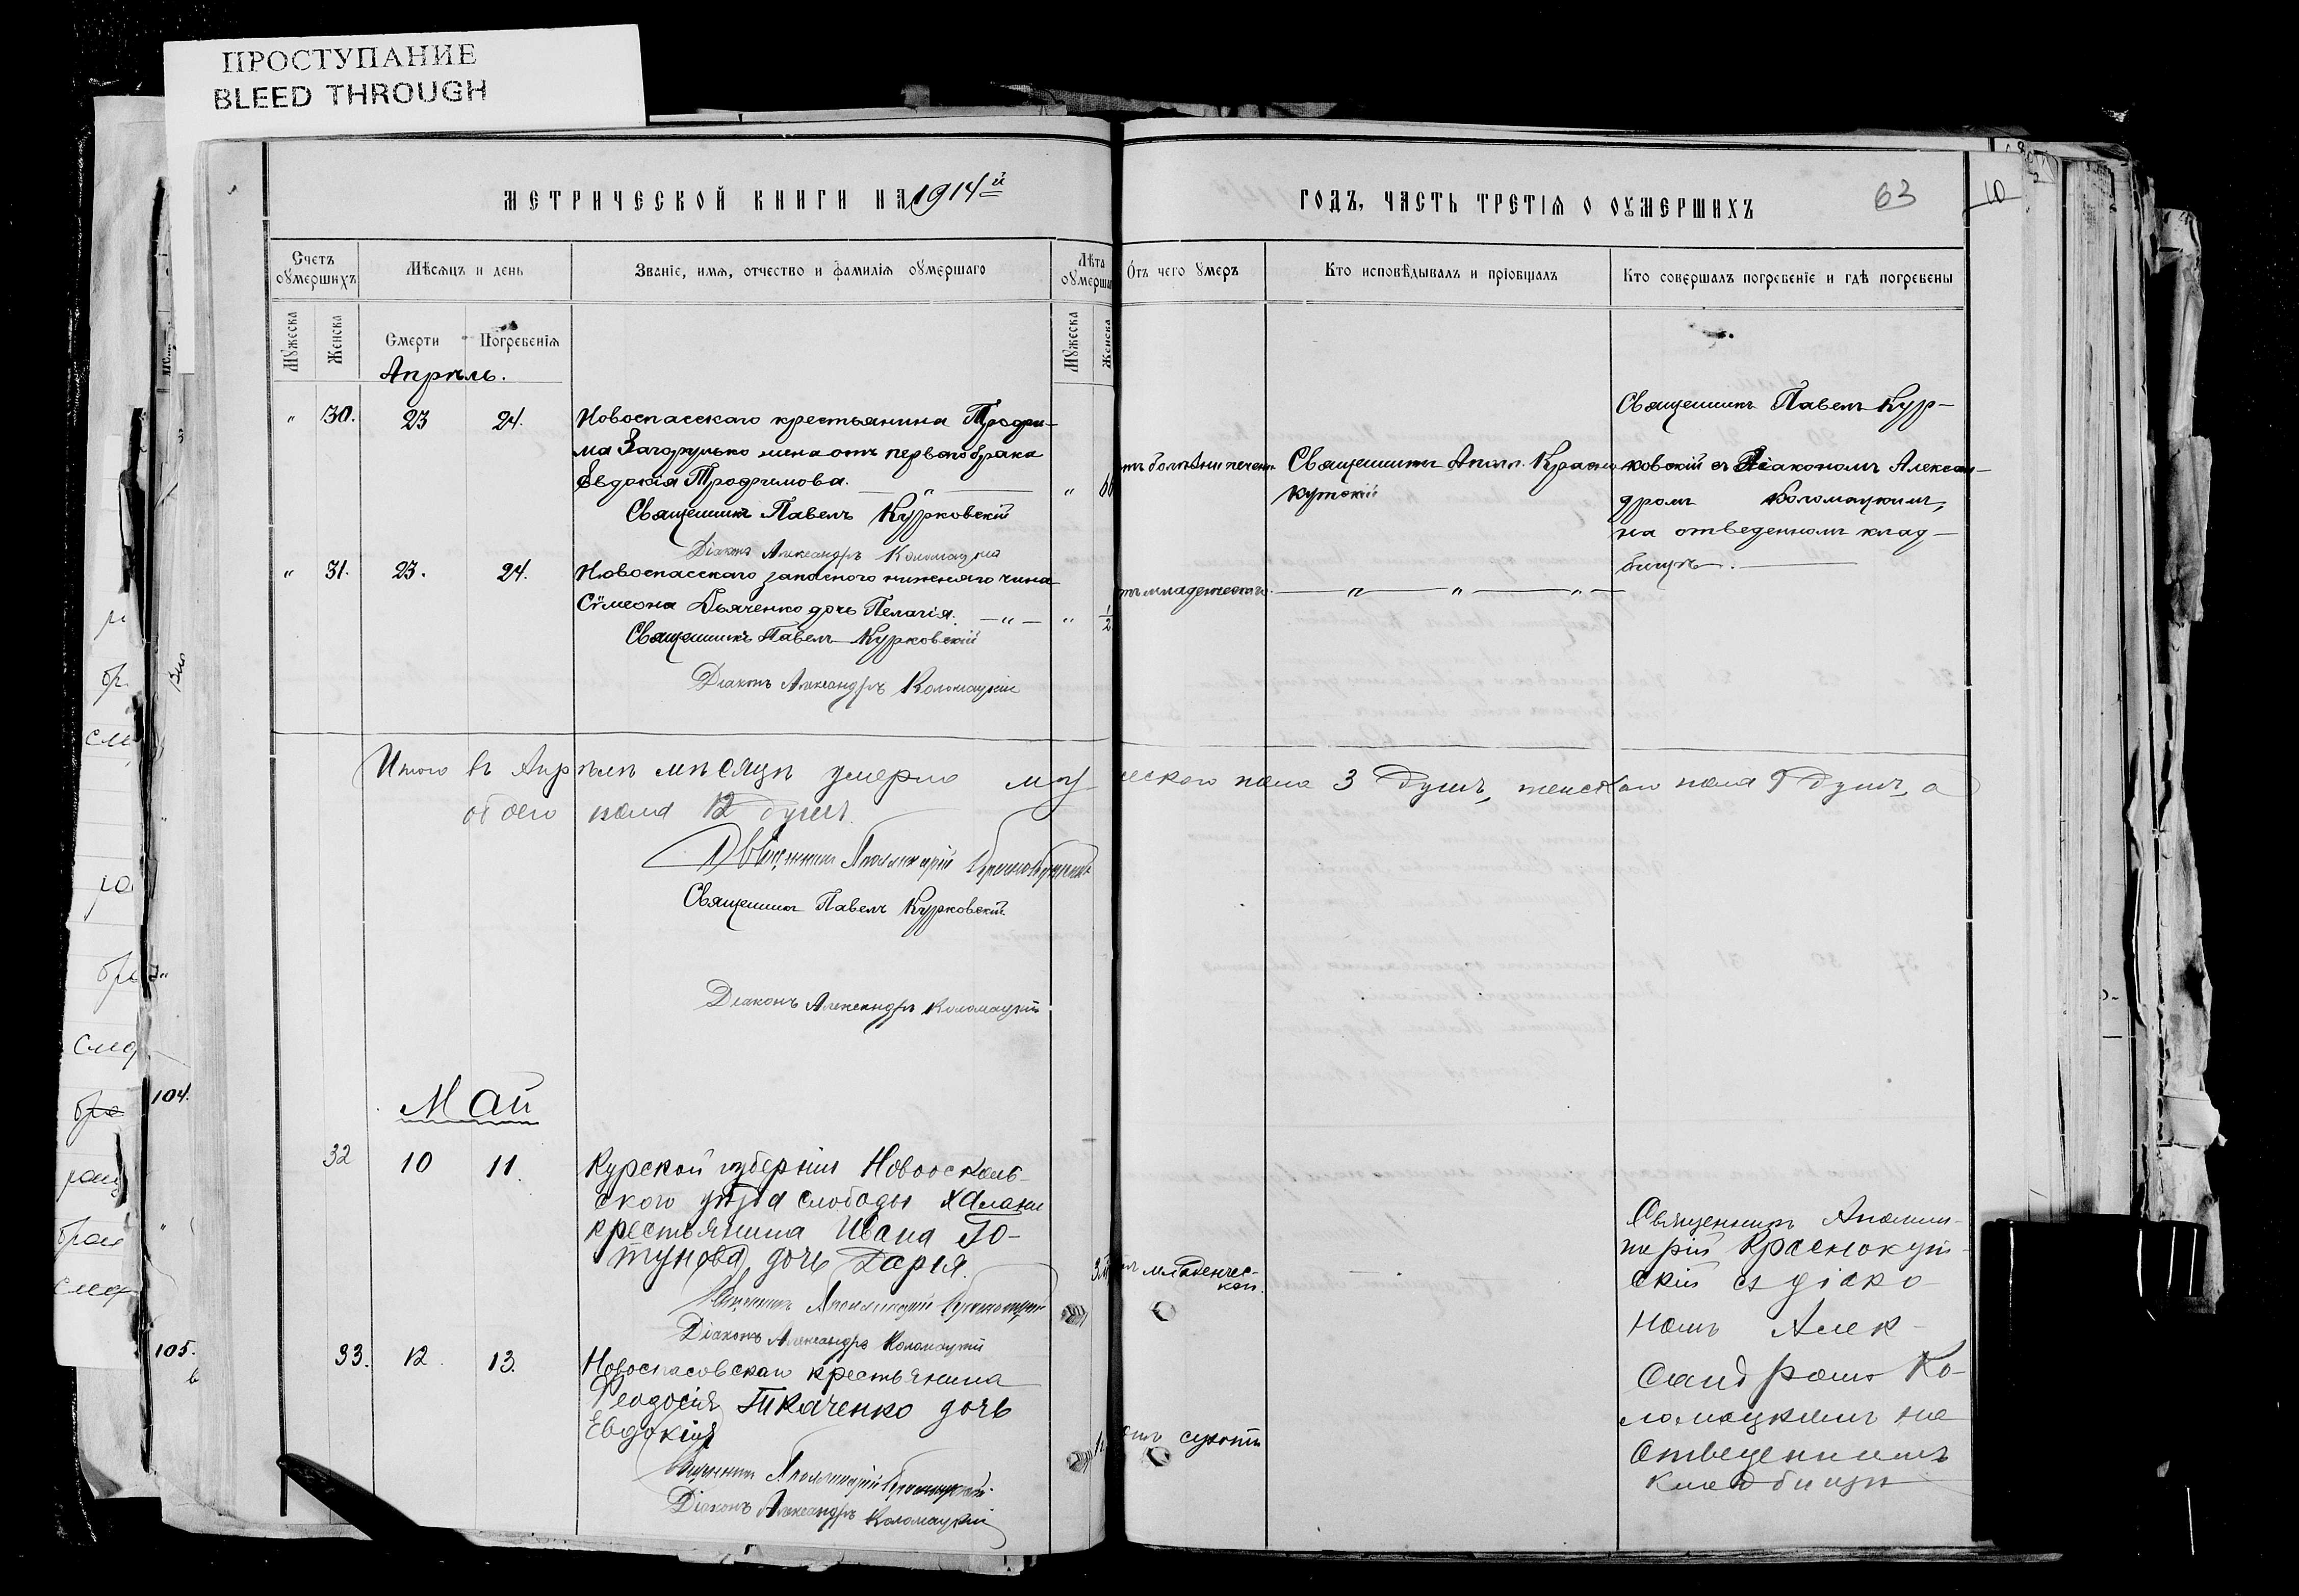 ПРОСТУПАНИЕ
BLEED THROUGH
МЕТРИЧЕСКОЙ КНИГИ НА 1914й
ГОДЪ, ЧАСТЬ ТРЕТІЯ О ОУМЕРШИХЪ
63
10
Счетъ оумершихъ
Мѣсяцъ и день
Званіе, имя, отчество и фамилія оумершаго
Лѣта
оумерша
Отъ чего умеръ
Кто исповѣдывалъ и пріобщалъ
Кто совершалъ погребеніе и гдѣ погребены
Мужеска
Женска
Смерти
Погребенія
Мужеска
Женска
Апрѣль.
" 30. 23 24.
Новоспасскаго крестьянина Трофи-
ма Загорулько жена отъ перваго брака
Евдокія Трофимова.
Священникъ Павелъ Курковскій
Діаконъ Александръ
болѣзни печени.
Священникъ Апол. Красно
кутскій
Священникъ Павелъ Кур-
ковскій съ Діакономъ Алексан-
дромъ Коломацкимъ,
на отведенномъ клад-
бищѣ.
" 31. 23. 24.
Новоспасскаго запаснаго нижняго чина
Сѵмеона Дьяченко дочь Пелагія. — " — " 1/2
Священникъ Павелъ Курковскій
Діаконъ Александръ Коломацкій
младенческ.
— " — " — " —
Итого въ Апрѣлѣ мѣсяцѣ умерло муж
ескаго пола 3 душъ, женскаго пола 9 душъ, а
обоего пола 12 душъ.
Священникъ Аполлинарій Краснокутскій
Священникъ Павелъ Курковскій
Діаконъ Александръ Коломацкій
Май
32 10 11.
Курской губерніи Новоосколь-
скаго уѣзда слободы Халани
крестьянина Ивана
дочь Дарія.
Священникъ Аполлинарій Краснокутскій
Діаконъ Александръ Коломацкій
младенчес-
кой.
Священникъ Аполли-
нарій Краснокут-
скій съ діако-
номъ Алек-
сандромъ Ко-
ломацкимъ на
отведенномъ
кладбищѣ
33. 12. 13.
Новоспасовскаго крестьянина
Феодосія Ткаченко дочь
Евдокія
Священникъ Аполлинарій Краснокутскій
Діаконъ Александръ Коломацкій
отъ сухоты
104.
105.